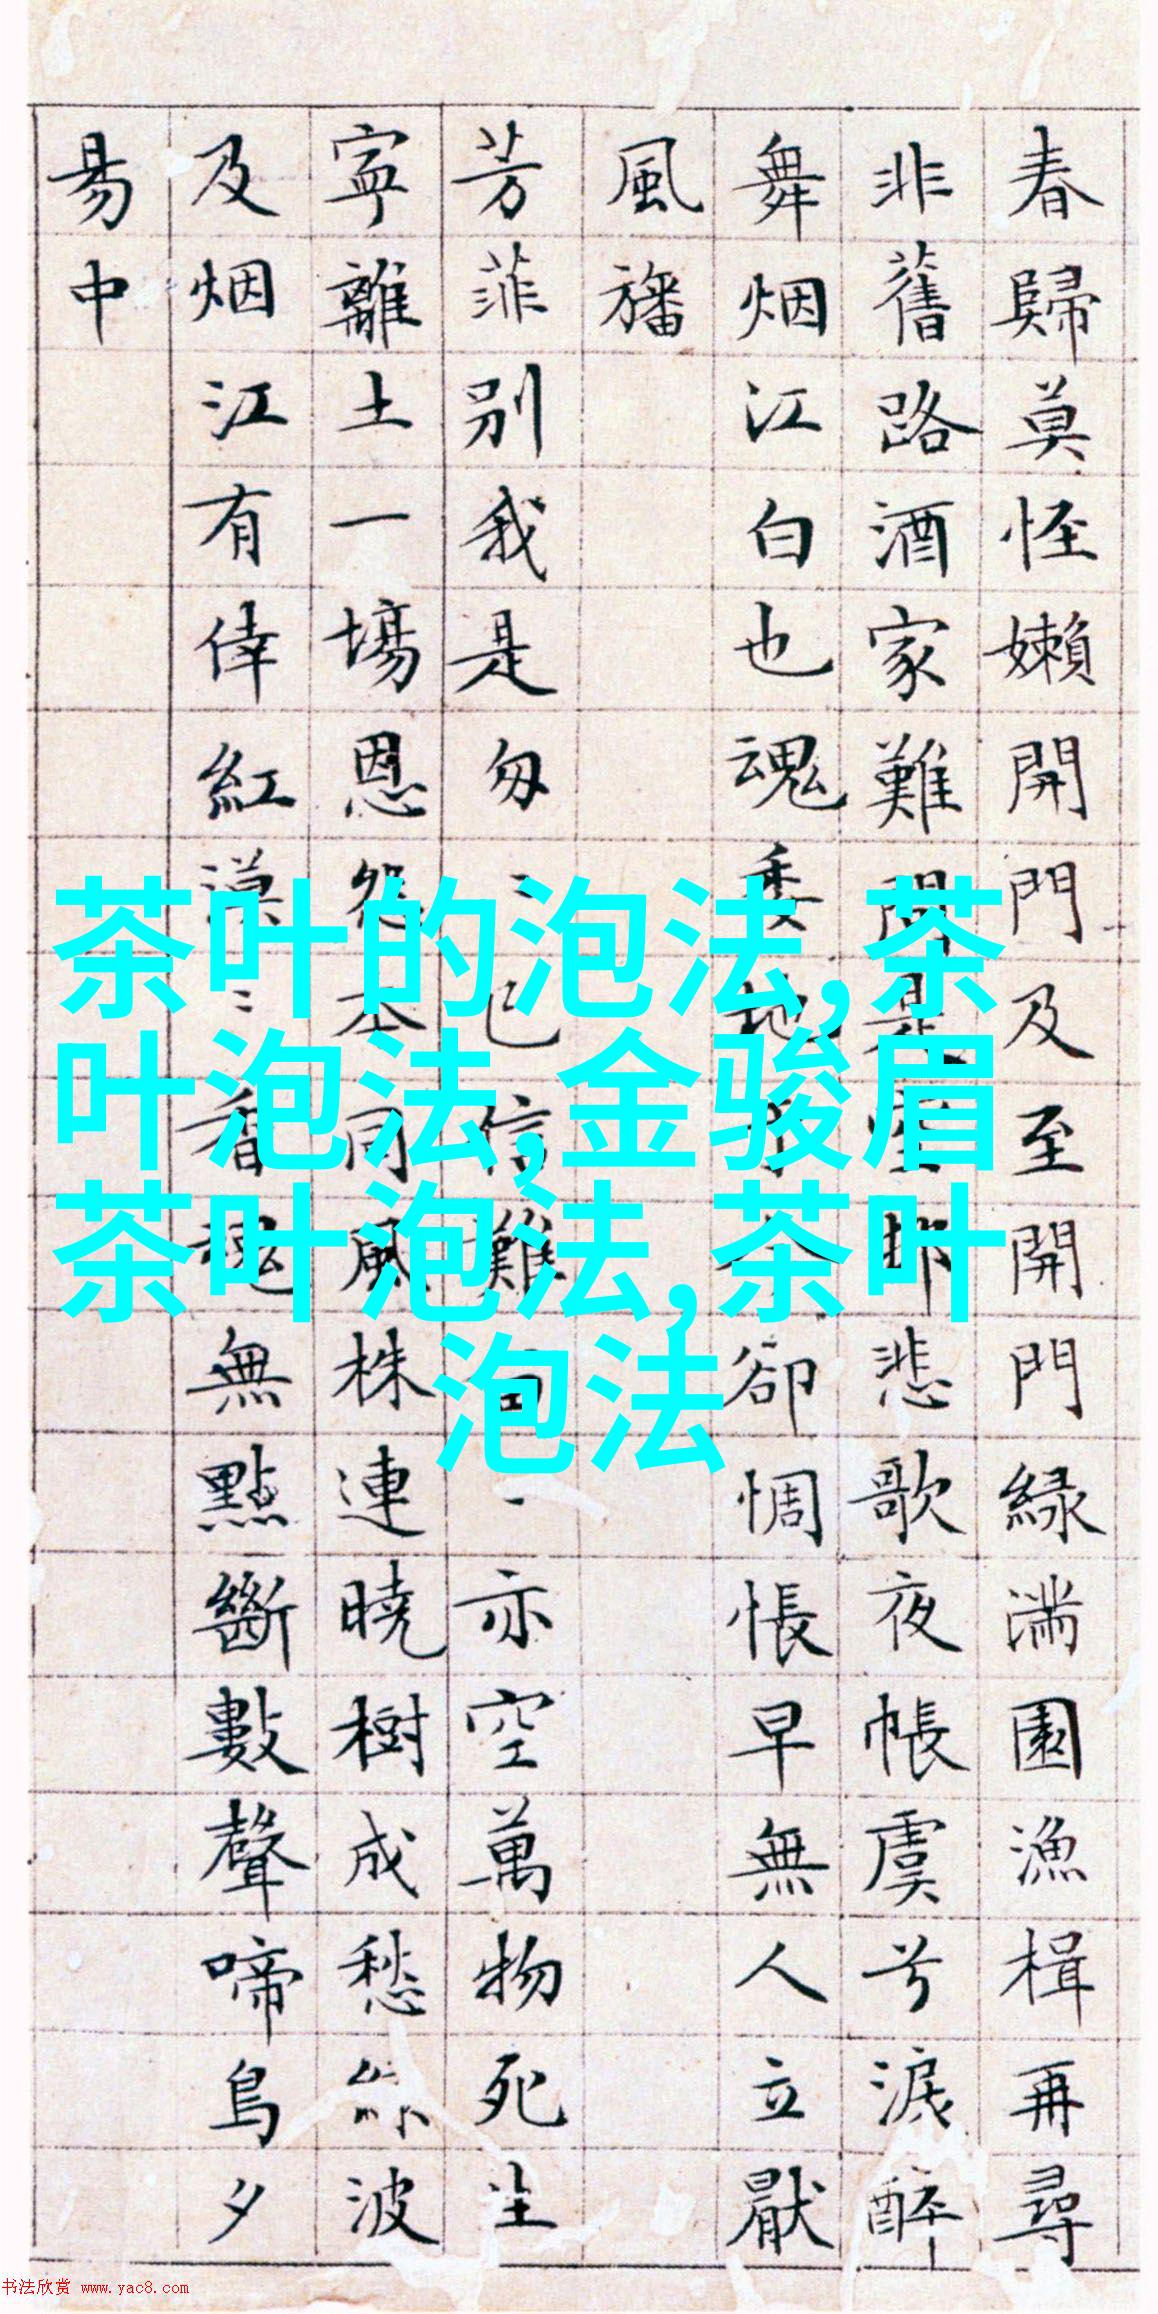 春歸莫怪嬾開門及至開門緑滿園漁楫再尋
非舊路酒家難問是空邨悲歌夜帳虞兮淚醉
舞烟江白也魂委地于今卻惆悵早無人立厭
風旛
芳菲別我是匆〻已信難留亦空萬物死生
寧離土一場恩怨本同風株連曉樹成愁綠波
及烟江有倖紅漠〻香魂無點斷數聲啼鳥夕
易中
茶叶的泡法,茶
叶泡法,金骏眉
茶叶泡法,茶叶
泡法
书法欣赏 www.yac8.com